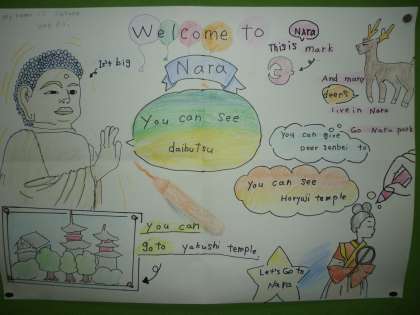 My name is
Welcome to
Nara
Nara
It's big
This is mark
And many
deers
live in Nara
You can see
daibutsu
Go Nara park
You can give
deer senbei to
You can see
Horyuji temple
You can
go to yakushi temple
Let's Go to
Nara